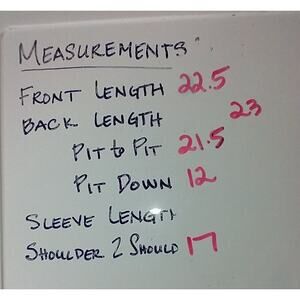 MEASUREMENTS
FRONT LENGTH 22.5
BACK LENGTH 23
PIT to PIT 21.5
PIT DOWN 12
SLEEVE LENGTH
SHOULDER 2 SHOULD 17